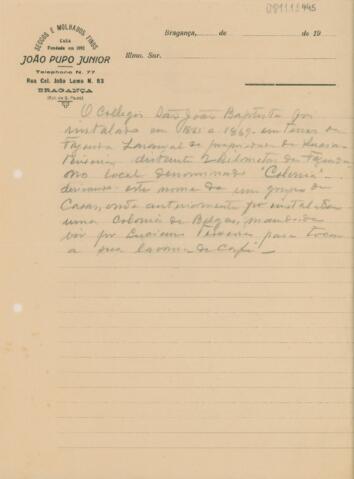 081115 445
SECCOS E MOLHADOS FINOS
CASA
Fundada em 1892
JOÃO PUPO JUNIOR
Telephone N. 77
Rua Cel. João Leme N. 83
BRAGANÇA
(Est. de S. Paulo)
Bragança, de de 19
Illmo. Snr.
O Collegio São João Baptista foi
installado em 1865 a 1869 em terras da
Fazenda Laranjal de propriedade de Luciano
Teixeira distante 2 kilometros da Fazenda
no local denominado "Colonia"
este nome de um grupo de
Casas, onde anteriormente foi installada
uma Colonia de Belgas, mandada
vir por Luciano Teixeira para tocar
a sua lavoura de Café